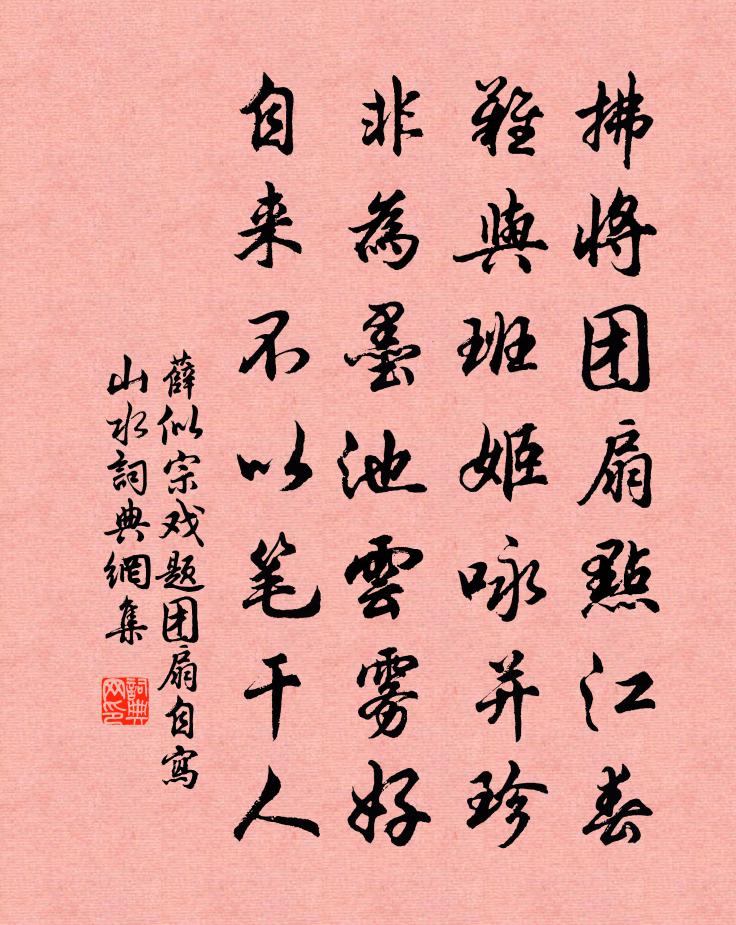 拂將团扇點江春
難與班姬咏并珍
非為墨池雲雾好
自来不以笔干人
薛似宗戏题团扇自寫
山水詞典網集
詞典
网印